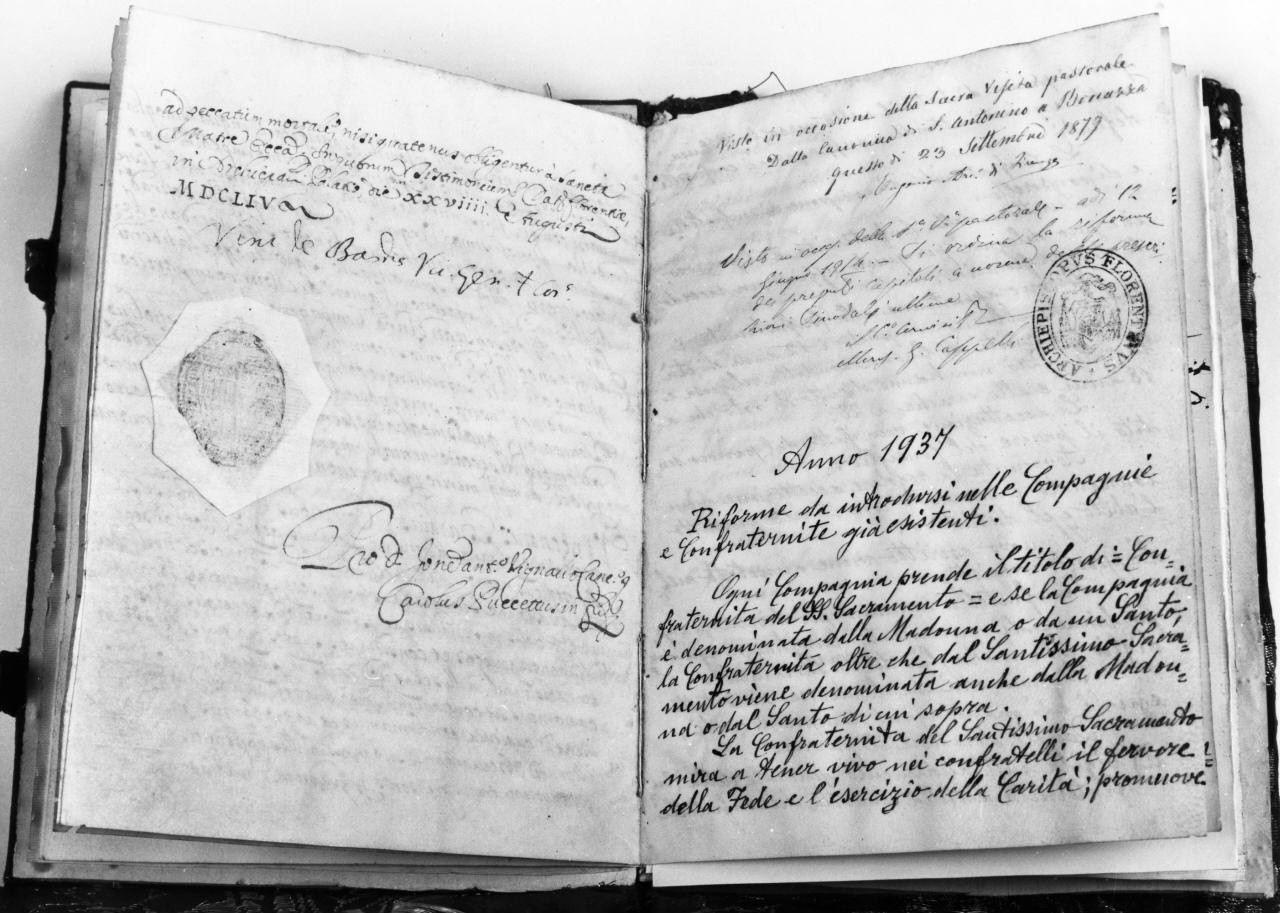 ad peccatum mortale, nisi quatenus obligentur à Sancta
Matre Eccla. In quorum Testimonium Dat. Florentiae,
in Archiepali Palatio die XXVIIII. Augusti
MDCLIV
Vinc de Bardis Vic. Gen.
Carolus
Visto in occasione della Sacra Visita pastorale
Dalla Canonica di S. Antonino a Bonazza
questo dì 23 Settembre 1879
Eugenio Arc. di
Visto in occ. della Sa. Va. pastorale - adì 12
Giugno 1914 - Si ordina la riforma
dei presenti Capitoli a norma delle
Sinodali ultime
Mons. G. Cappelli
ARCHIEPISCOPVS FLORENTINVS
Anno 1937
Riforme da introdursi nelle Compagnie
e Confraternite già esistenti.
Ogni Compagnia prende il titolo di = Con=
fraternita del SS. Sacramento = e se la Compagnia
è denominata dalla Madonna o da un Santo,
la Confraternita oltre che dal Santissimo Sacra=
mento viene denominata anche dalla Madon=
na o dal Santo di cui sopra.
La Confraternita del Santissimo Sacramento
mira a tener vivo nei confratelli il fervore
della Fede e l'esercizio della Carità; promuove=